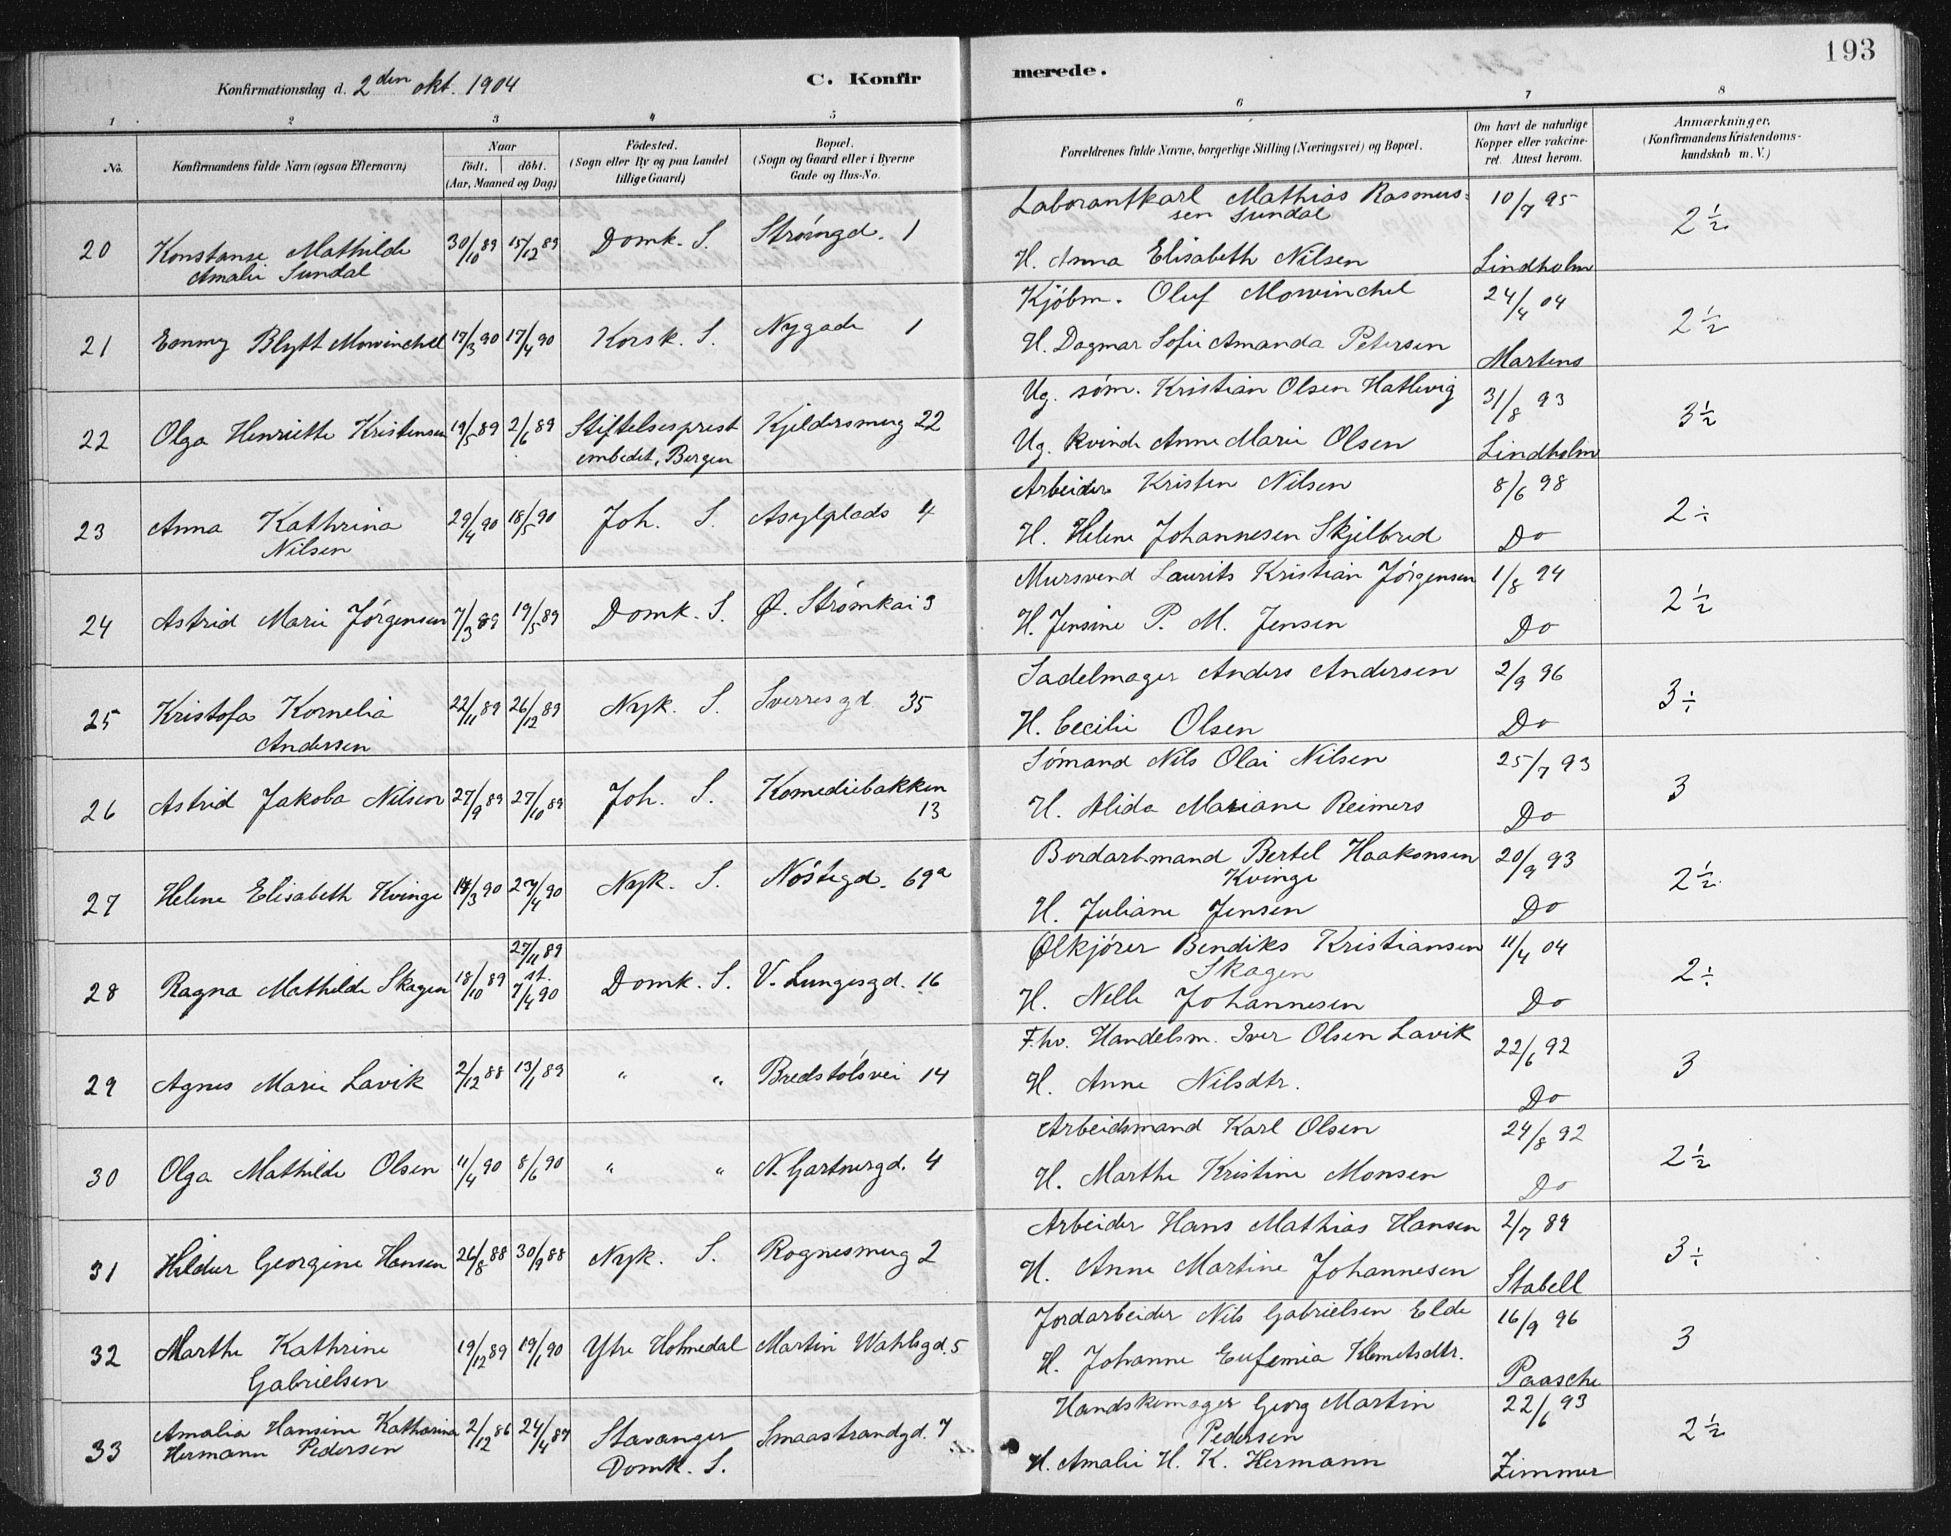 193
Konfirmationsdag d. 2den okt. 1904 C. Konfirmerede.
1 2 3 4 5 6 7 8
No. Konfirmandens fulde Navn (ogsaa Efternavn) Naar födt. döbt. (Aar, Maaned og Dag) Födested. (Sogn eller By og paa Landet tillige Gaard) Bopæl. (Sogn og Gaard eller i Byerne Gade og Hus-No. Forældrenes fulde Navne, borgerlige Stilling (Næringsvei) og Bopæl. Om havt de naturlige Kopper eller vakcineret. Attest herom. Anmærkninger. (Konfirmandens Kristendomskundskab m. V.)
20 Konstanse Mathilde 30/10 89 15/12 89 Domk. S. Strömgd. 1 Laborantkarl Mathias Rasmus- 10/7 95 2 ½
Amalie Sundal sen Sundal
H. Anna Elisabeth Nilsen Lindholm
21 Emmy Blytt Mowinckel 17/3 90 17/4 90 Korsk. S. Nygade 1 Kjöbm. Oluf Mowinckel 24/4 04 2 ½
H. Dagmar Sofie Amanda Petersen Martens
22 Olga Henriette Kristensen 19/5 89 2/6 89 Stiftelsesprest Kjeldersmug 22 Ug. söm. Kristian Olsen Hatlevig 31/8 93 3 ½
embedet, Bergen Ug. kvinde Anne Marie Olsen Lindholm
23 Anna Kathrina 29/4 90 18/5 90 Joh. S. Asylplads 4 Arbeider Kristen Nilsen 8/6 98 2 ÷
Nilsen H. Helene Johannesen Skjelbred Do
24 Astrid Marie Jørgensen 7/3 89 19/5 89 Domk. S. Ø. Strømkai 3 Mursvend Laurits Kristian Jørgensen 1/8 94 2 ½
H. Jensine P. M. Jensen Do
25 Kristofa Kornelia 22/11 89 26/12 89 Nyk. S. Sverresgd 35 Sadelmager Anders Andersen 2/9 96 3 ÷
Andersen H. Cecilie Olsen Do
26 Astrid Jakoba Nilsen 27/9 89 27/10 89 Joh. S. Komediebakken Sömand Nils Olai Nilsen 25/7 93 3
13 H. Alida Mariane Reimers Do
27 Helene Elisabeth Kvinge 14/3 90 27/4 90 Nyk. S. Nöstegd. 69a Bordarb.mand Bertel Haakonsen 20/9 93 2 ½
Kvinge
H. Juliane Jensen Do
28 Ragna Mathilde Skagen 18/10 89 27/11 89 st. 7/4 90 Domk. S. V. Lungesgd. 16 Ølkjörer Bendiks Kristiansen 11/4 04 2 ÷
Skagen
H. Nelle Johannesen Do
29 Agnes Marie Lavik 2/12 88 13/1 89 " " Bredstölsvei 14 F.hv. Handelsm. Iver Olsen Lavik 22/6 92 3
H. Anne Nilsdtr. Do
30 Olga Mathilde Olsen 11/4 90 8/6 90 " " N. Gartnergd. 4 Arbeidsmand Karl Olsen 24/8 92 2 ½
H. Marthe Kristine Monsen Do
31 Hildur Georgine Hansen 26/8 88 30/9 88 Nyk. S. Rognesmug 2 Arbeider Hans Mathias Hansen 2/7 89 3 ÷
H. Anne Martine Johannesen Stabell
32 Marthe Kathrine 19/12 89 19/1 90 Ytre Holmedal Martin Wahlsgd. 5 Jordarbeider Nils Gabrielsen Elde 16/9 96 3
Gabrielsen H. Johanne Eufemia Klemetsdtr. Paasche
33 Amalia Hansine Katharina 2/12 86 24/4 87 Stavanger Smaastrandgd. 7 Handskemager Georg Martin 22/6 93 2 ½
Hermann Pedersen Domk. S. Pedersen
H. Amalie H. K. Hermann Zimmer